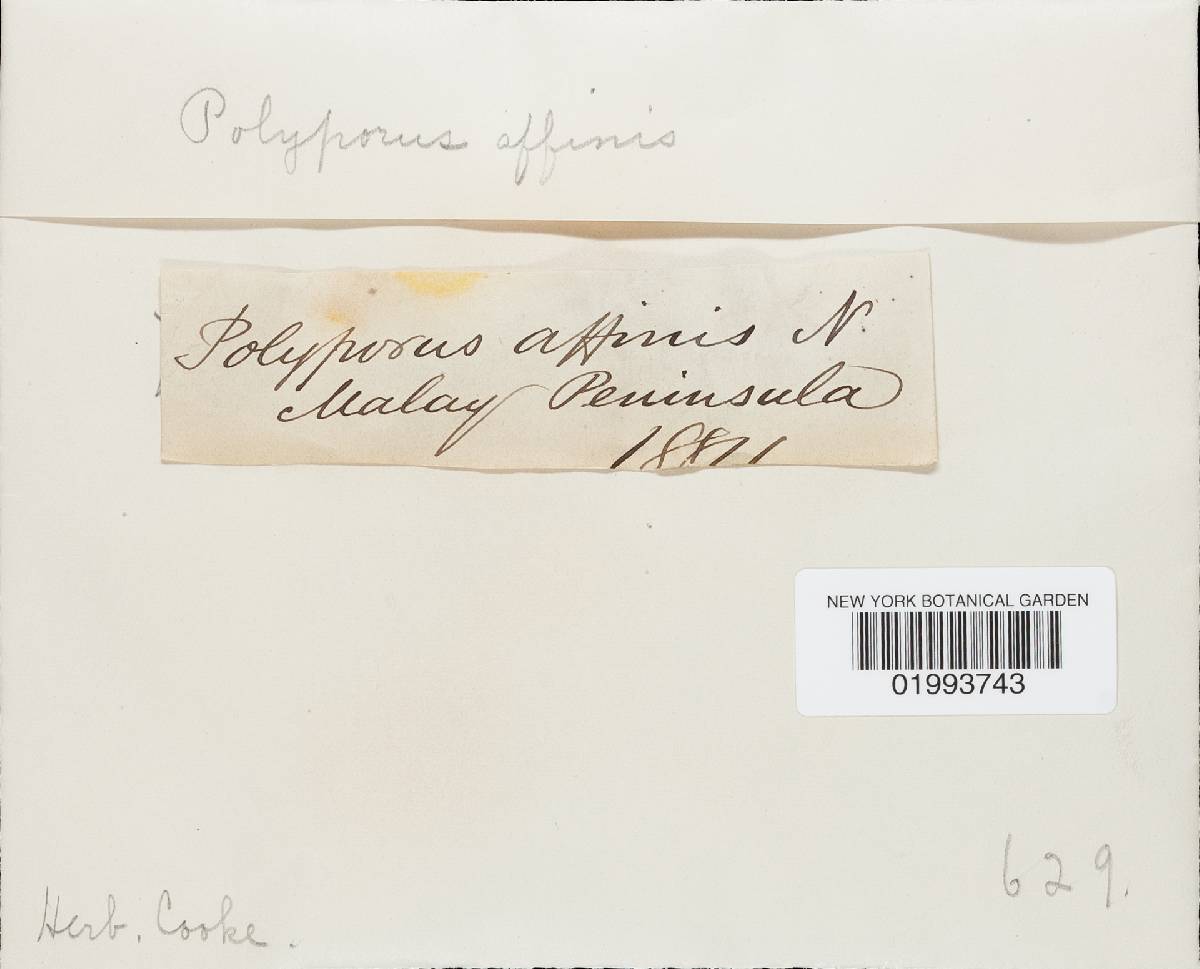 Polyporus affinis
Polyporus affinis N.
Malay Peninsula
NEW YORK BOTANICAL GARDEN
01993743
629.
Herb. Cooke.